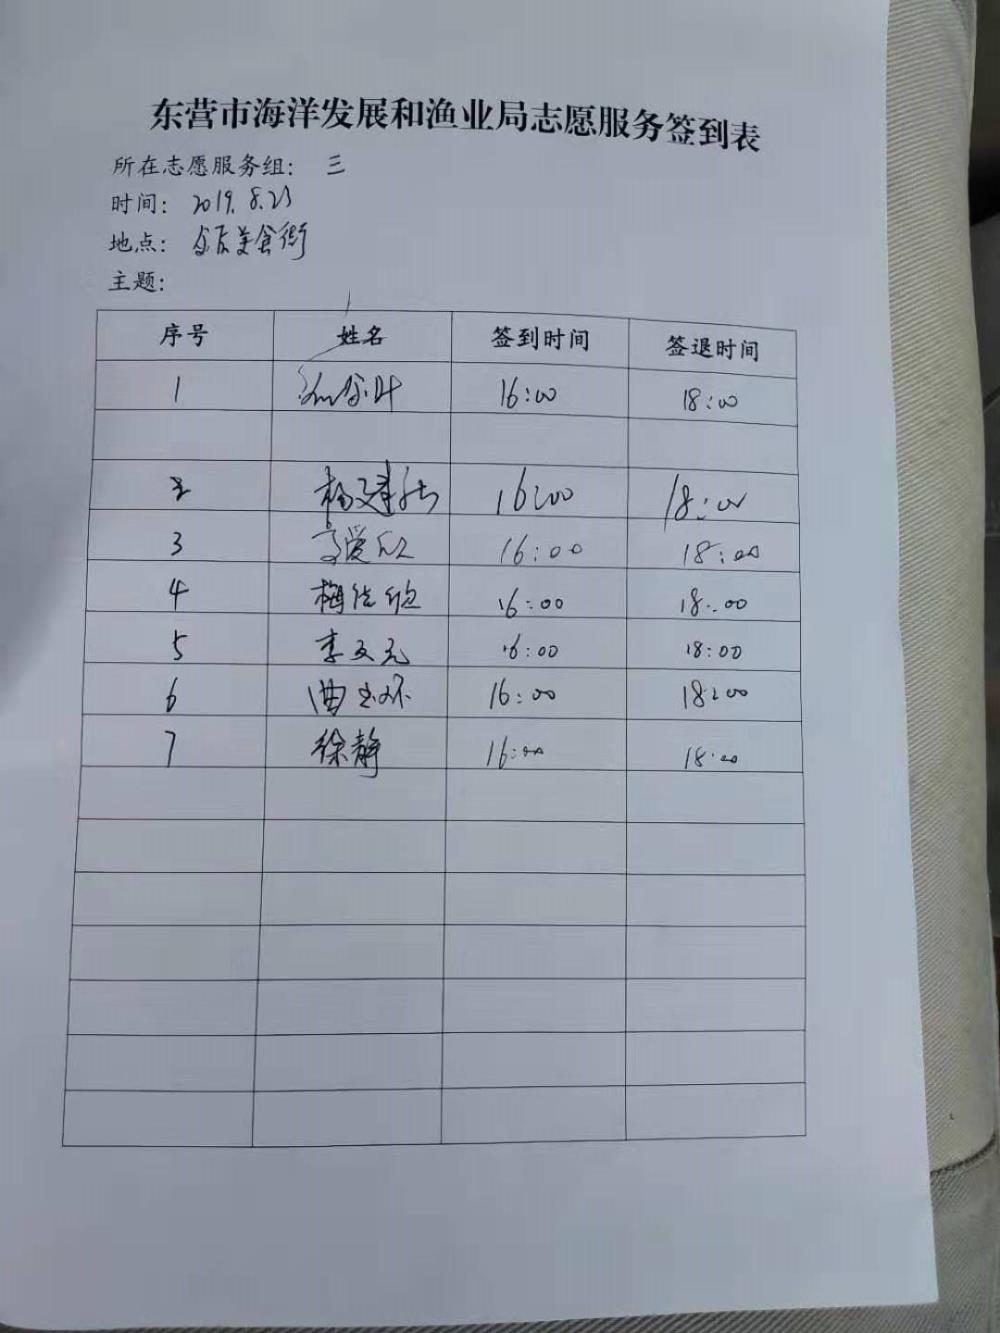 东营市海洋发展和渔业局志愿服务签到表
所在志愿服务组： 三
时间： 2019.8.23
地点： 美食街
主题：
序号 姓名 签到时间 签退时间
1 16:00 18:00
2 杨建 16:00 18:00
3 16:00 18:00
4 梅 16:00 18:00
5 李文元 16:00 18:00
6 曲玉环 16:00 18:00
7 徐静 16:00 18:00